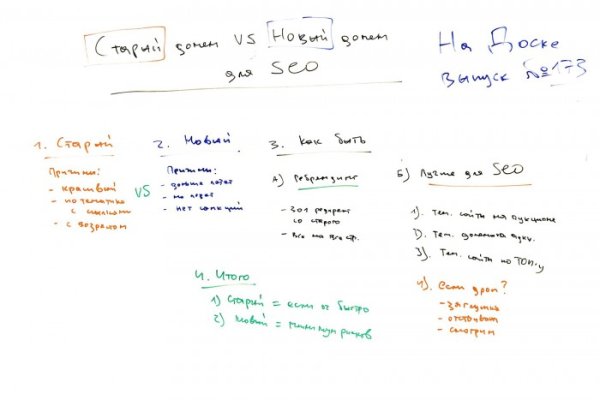 Старый домен VS Новый домен
для SEO
На Доске
выпуск №173
1. Старый
Причины:
- красивый
- по тематике
с ссылками
- с возрастом
VS
2. Новый
Причины:
- дольше
- не
- нет санкций
3. Как быть
А) Ребрендинг
- 301 редирект
со старого
- Все на все стр.
Б) Лучше для SEO
1). Тем. сайты на аукционе
2). Тем. домена аукц.
3). Тем. сайты по ТОП-у
4). Если дроп?
- заглушка
- отстаивать
- смотрим
4. Итого
1) Старый = если оч быстро
2) Новый = минимум рисков